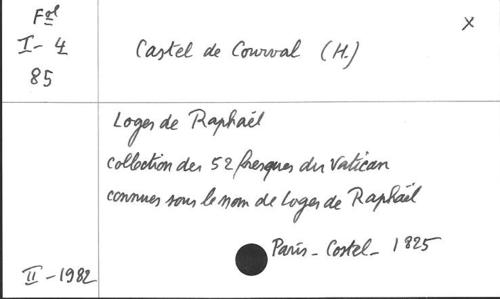 Fol
I-4
85
Castel de Courval (H.)
X
Loges de Raphaël
collection des 52 fresques du Vatican
connues sous le nom de Loges de Raphaël
Paris - Costel - 1825
II - 1982